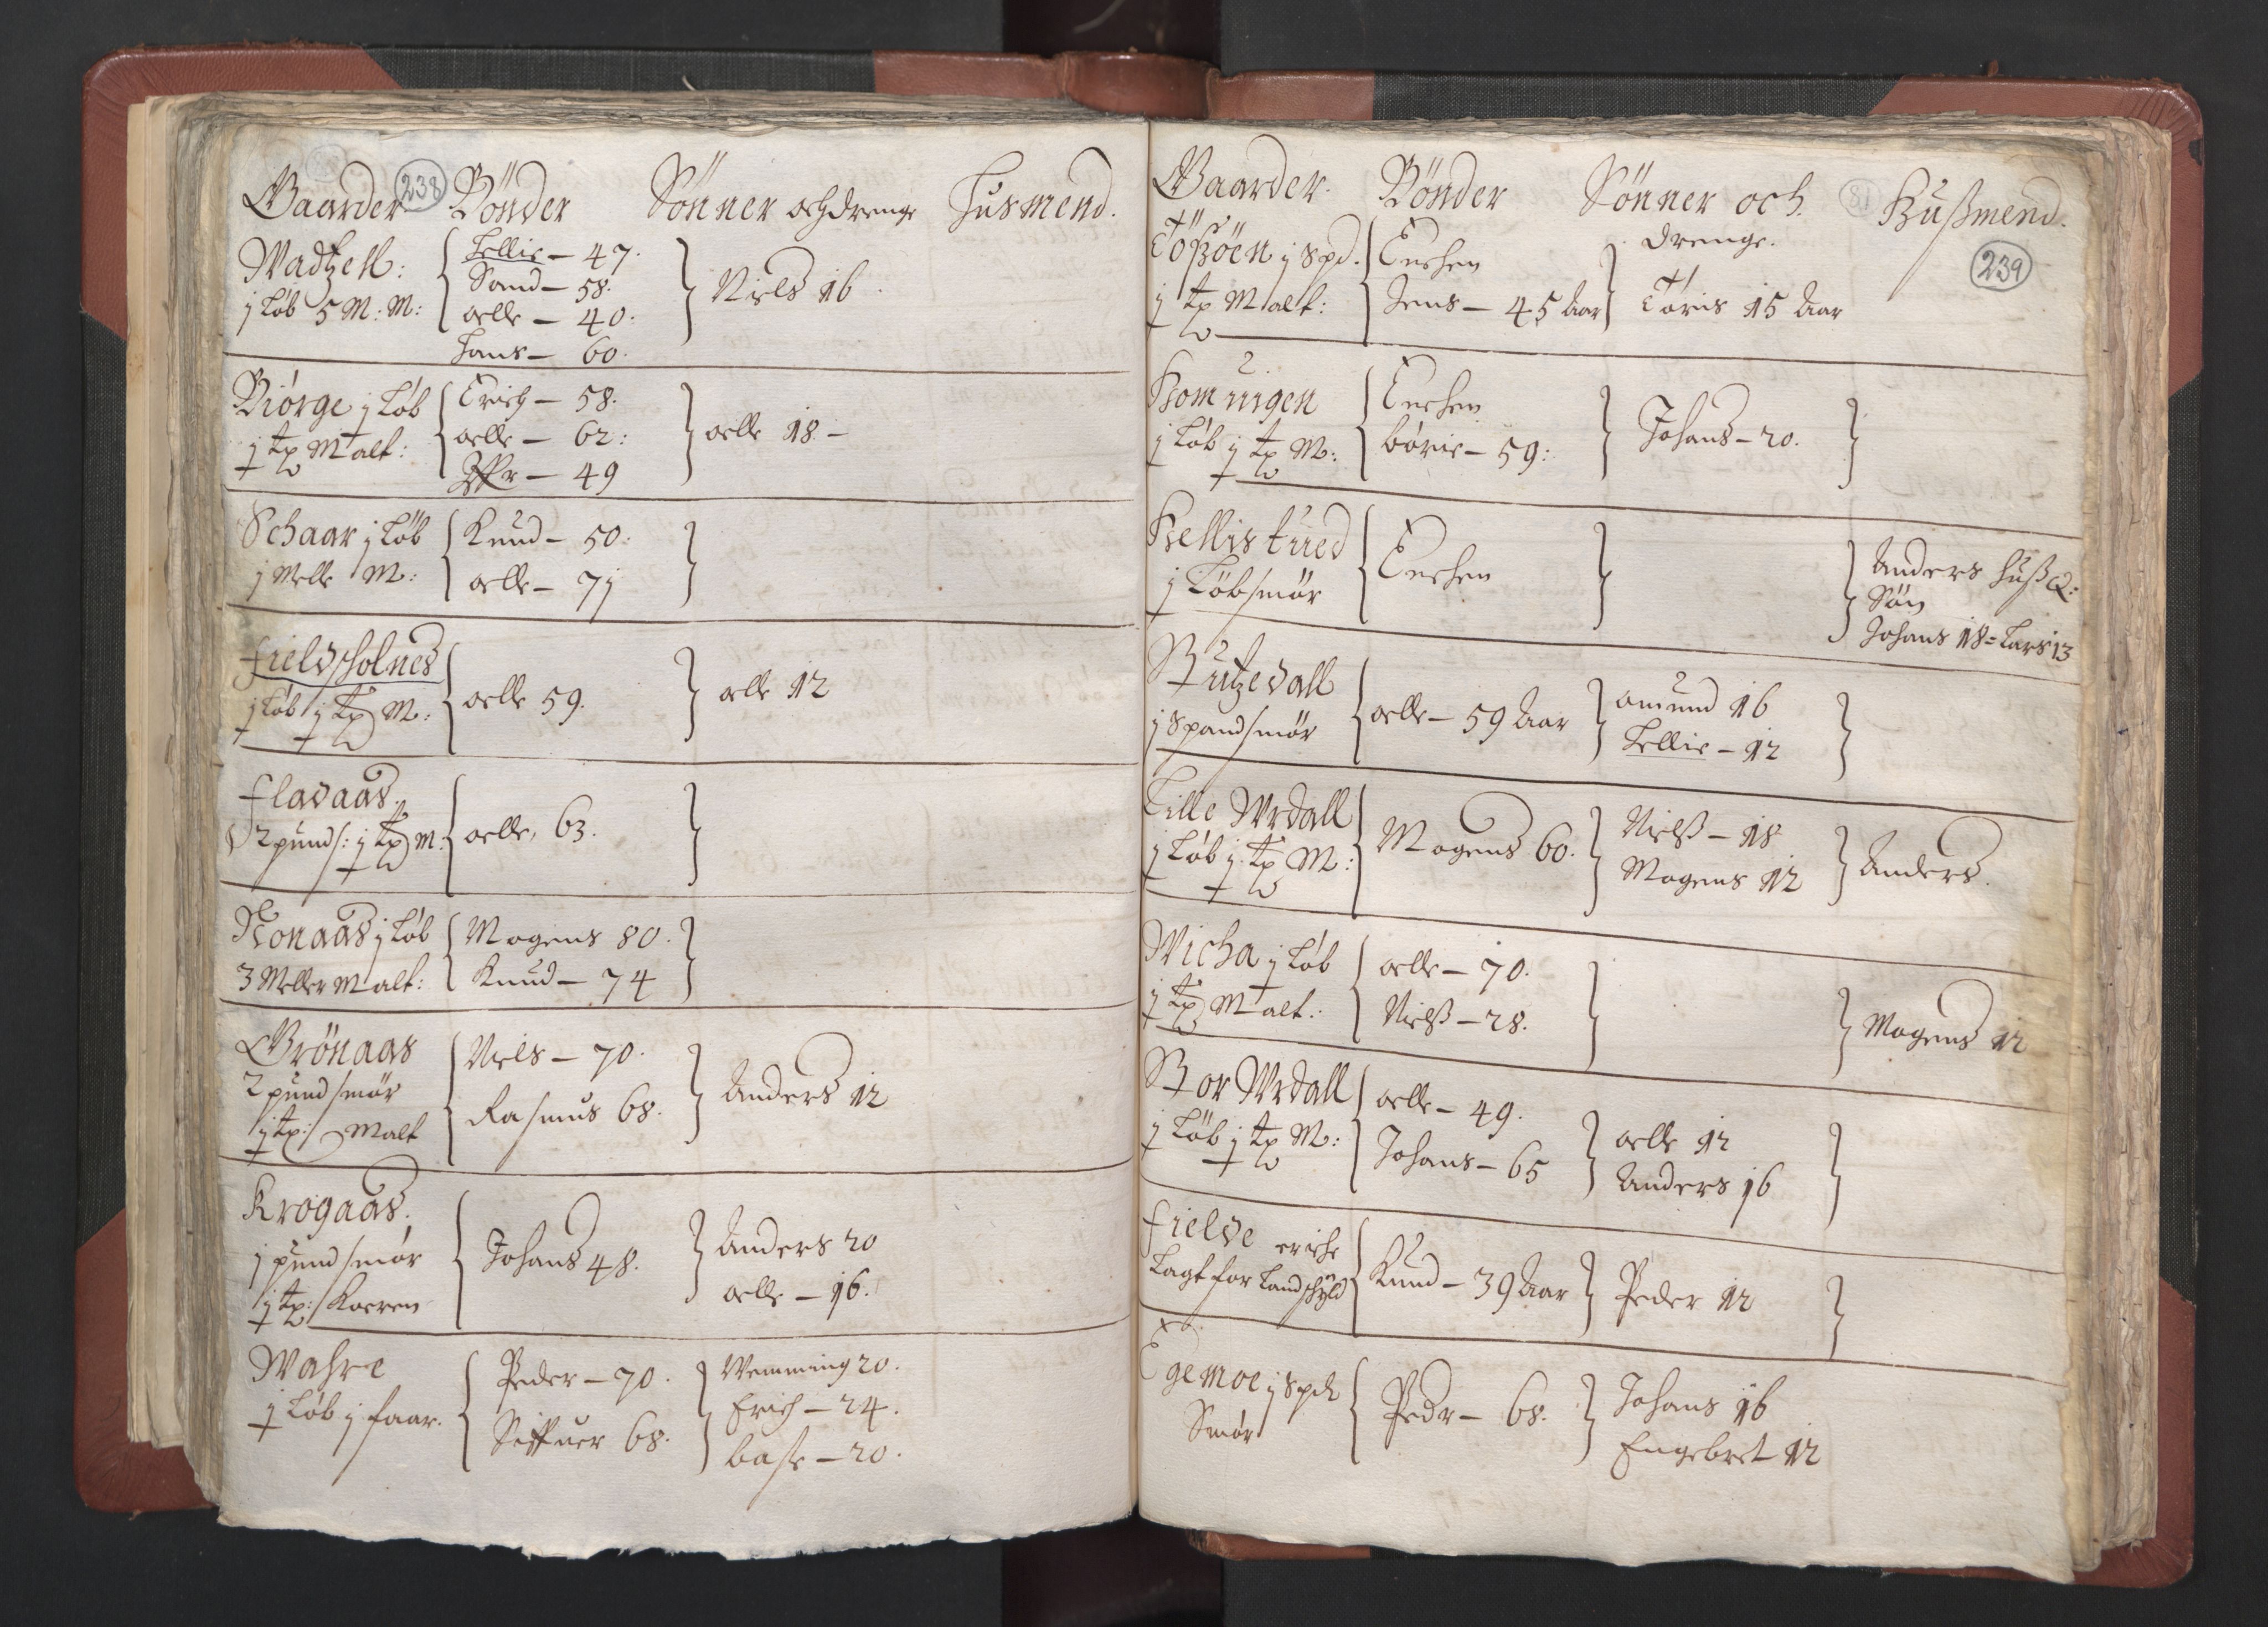 Gaarder 238 Bönder Sönner och drenge Husmend.
Wadtzell:
j Löb 5 M: M:
Tellie — 47.
Sand — 58.
oelle — 40.
Hans — 60.
Niels 16
Biörge j Löb
j tp Malt:
Erich — 58.
oelle — 62:
— 49
oelle 18 —
Schaar j Löb
j Melle M:
Knud — 50:
oelle — 7j
Fieldscholnes
j Löb j tp M:
oelle 59.
oelle 12
Fladaas.
2 pund s: j tp M:
oelle, 63.
Nonaas j Löb
3 Meller Malt:
Mogens 80.
Knud — 74
Grönaas
2 pund smör
j tp: Malt
Niels — 70.
Rasmus 68.
Anders 12
Krogaas.
j pund smör
j tp: Koeren
Johans 48.
Anders 20
oelle — 16.
Wahre
j Löb j faar.
Peder — 70.
Siffuer 68.
Wemming 20.
Erich — 24.
base — 20.
Gaarder. Bönder Sönner och drenge. Hüßmend.
239
Tößöen j Spd.
j tp Malt:
Enchen
Jens — 45 Aar
Toris 15 Aar
Homŭigen
j Löb j tp M:
Enchen
börie — 59:
Johans — 20.
Hellistŭed
j Löb smör
Enchen
Anders Hŭß Q:
Søn
Johans 18 = Lars 13
Stŭtzedall
j Spand smör
oelle — 59 Aar
omund 16
Tellie — 12
Lille Wrdall
j Löb j tp M:
Mogens 60.
Nielß — 18
Mogens 12
Anders.
Wicha j Löb
j tp Malt:
oelle — 70.
Nielß — 28.
Mogens 12
Stor Wrdall
j Löb j tp M:
oelle — 49.
Johans — 65
oelle 12
Anders 16
Fielde er iche
Lagt for Landschyld
Knud — 39 Aar
Peder 12
Egemoe j Spd
Smör
Pedr — 68.
Johans 16
Engebret 12